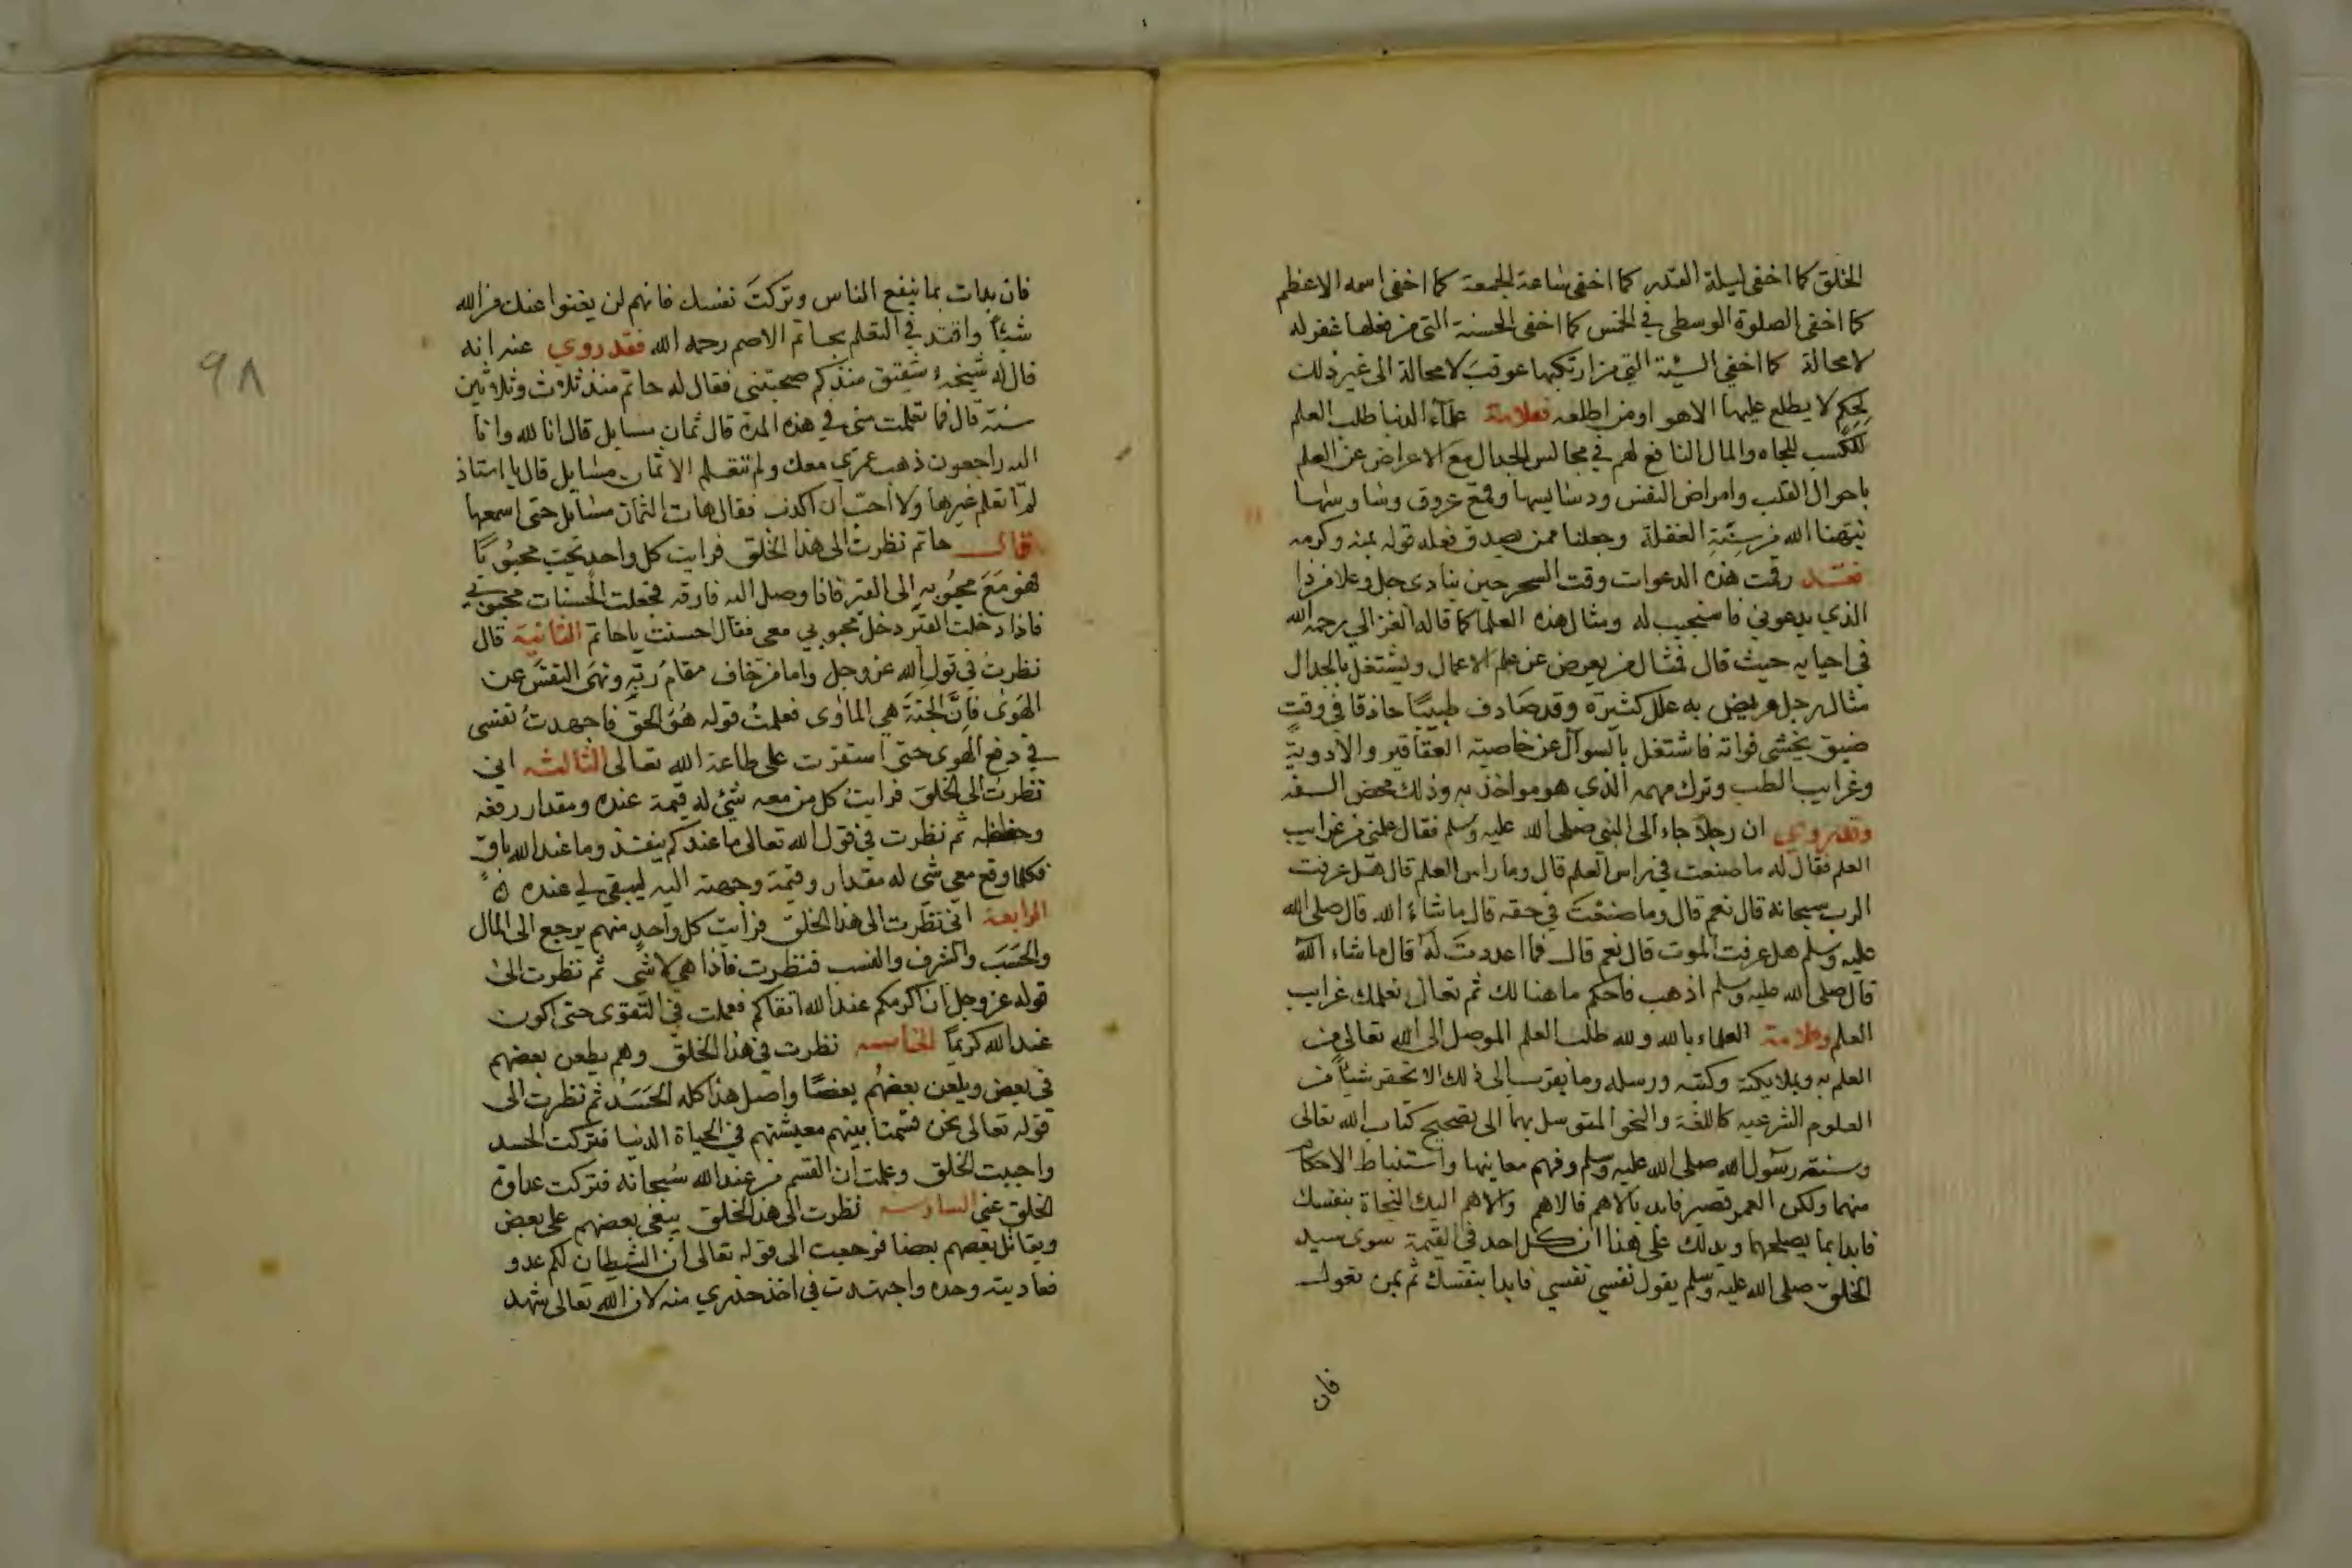 الخلق كما اخفى ليلة القدر كما اخفى ساعة الجمعة كما اخفى اسمه الاعظم
كما اخفى الصلوة الوسطى في الخمس كما اخفى الحسنة التي من فعلها غفر له
لا محالة كما اخفى السيئة التي من ارتكبها عوقب لا محالة الى غير ذلك
لحكم لا يطلع عليها الا هو او من اطلعه فعلامة علماء الدنيا طلب العلم
للكسب للجاه والمال النافع لهم في مجالس الجدال مع الاعراض عن العلم
باحوال القلب وامراض النفس ودسايسها وقمع عروق وساوسها
نبهنا الله من سِنَةِ الغفلة وجعلنا ممن يصدق فعله قوله بمنه وكرمه
فقد رقمت هذه الدعوات وقت السحر حين ينادي جل وعلا من ذا
الذي يدعوني فاستجيب له ومثال هذه العلما كما قاله الغزالي رحمه الله
في احيايه حيث قال فمثال من يعرض عن علم الاعمال ويشتغل بالجدال
مثال رجل مريض به علل كثيرة وقد صادف طبيبًا حاذقا في وقتٍ
ضيق يخشى فواته فاشتغل بالسوال عن خاصية العقاقير والادوية
وغرايب الطب وترك مهمه الذي هو مواخذ به وذلك محض السفه
وقد روي ان رجلاً جاء الى النبي صلى الله عليه وسلم فقال علمني من غرايب
العلم فقال له ما صنعت في راس العلم قال وما راس العلم قال هل عرفت
الرب سبحانه قال نعم قال وما صنعت في حقه قال ما شاء الله قال صلى الله
عليه وسلم هل عرفت الموت قال نعم قال فما اعددت له قال ما شاء الله
قال صلى الله عليه وسلم اذهب فاحكم ما هنا لك ثم تعال نعلمك غرايب
العلم وعلامة العلماء بالله ولله طلب العلم الموصل الى الله تعالى من
العلم به وبملايكته وكتبه ورسله وما يقرب الى ذلك الا تحقر شيأً من
العلوم الشرعيه كاللغة والنحو المتوسل بهما الى تصحيح كتاب الله تعالى
وسنة رسول الله صلى الله عليه وسلم وفهم معاينها واستنباط الاحكام
منهما ولكن العمر قصير فابد بالاهم فالاهم والاهم اليك النجاة بنفسك
فابدا بما يصلحها ويدلك على هذا ان كل احد في القيمة سوى سيد
الخلق صلى الله عليه وسلم يقول نفسي نفسي فابدا بنفسك ثم بمن تعول
فان
فان بدات بما ينفع الناس وتركتَ نفسك فانهم لن يغنوا عنك من الله
شيئاً واقتد في التعلم بحاتم الاصم رحمه الله فقد روي عنه انه
قال له شيخه شقيق منذ كم صحبتني فقال له حاتم منذ ثلاث وثلاثين
سنة قال فما تعلمت مني في هذه المدة قال ثمان مسايل قال انا لله وانا
اليه راجعون ذهب عمري معك ولم تتعلم الا ثمان مسايل قال يا استاذ
لم اتعلم غيرها ولا احب ان اكذب فقال هات الثمان مسايل حتى اسمعها
قال حاتم نظرت الى هذا الخلق فرايت كل واحد يحب محبُوبًا
فهو مَعَ محبُوبه الى القبر فاذا وصل اليه فارقه فجعلت الحسنات محبوبي
فاذا دخلت القبر دخل محبوبي معي فقال احسنت يا حاتم الثانية قال
نظرتُ في قول الله عز وجل واما من خاف مقامَ ربّه ونهى النفسَ عن
الهَوى فاِنَّ الجنة هي الماوى فعلمتُ قوله هُوَ الحق فاجهدتُ نفسي
في دفع الهوى حتى استقرت على طاعة الله تعالى الثالثه اني
نظرت الى الخلق فرايت كل من معه شئ له قيمة عنده ومقدار رفعه
وحفظه ثم نظرت في قول الله تعالى ما عندكم ينفد وما عند الله باقٍ
فكلما وقع معي شي له مقدار وقيمة وجهته اليه ليبقى لي عنده
الرابعة اني نظرت الى هذا الخلق فرايت كل واحدٍ منهم يرجع الى المال
والحَسَبَ والشرف والنسب فنظرت فاذا هي لا شي ثم نظرت الى
قوله عز وجل ان اكرمكم عند الله اتقاكم فعملت في التقوى حتى اكون
عند الله كريمًا الخامسه نظرت في هذا الخلق وهم يطعن بعضهم
في بعض ويلعن بعضُهُم بعضًا واصل هذا كله الحَسَدُ ثم نظرت الى
قوله تعالى نحن قسمنا بينهم معيشتهم في الحياة الدنيا فتركت الحسد
واجتبت الخلق وعلمت ان القسم من عند الله سُبحانه فتركت عداوة
الخلق عني السادسه نظرت الى هذا الخلق يبغي بعضهم على بعض
ويقاتل بعضهم بعضا فرجعت الى قوله تعالى ان الشيطان لكم عدو
فعاديته وحده واجتهدت في اخذ حذري منه لان الله تعالى شهد
٩٨